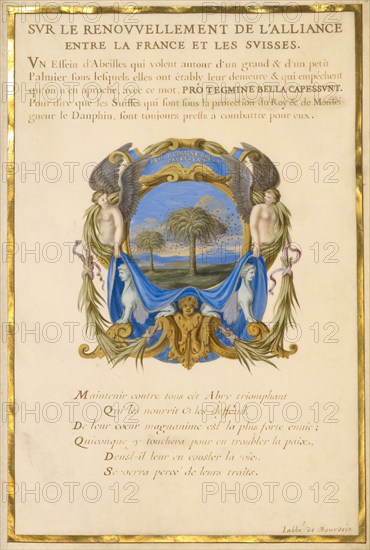 SVR LE RENOVVELLEMENT DE L'ALLIANCE
ENTRE LA FRANCE ET LES SVISSES.
VN Essein d'Abeilles qui volent autour d'un grand & d'un petit
Palmier sous lesquels elles ont étably leur demeure & qui empêchent
qu'on n'en aproche, avec ce mot. PRO TEGMINE BELLA CAPESSVNT.
Pour dire que les Suisses qui sont sous la protection du Roy & de Monseigneur
le Dauphin, sont toujours prests a combattre pour eux.
PRO TEGMINE BELLA
CAPESSVNT
Maintenir contre tous cét Abry triomphant
Qui les nourrit & les deffend,
De leur cœur magnanime est la plus forte envie;
Quiconque y touchera pour en troubler la paix,
Deust-il leur en couster la vie,
Se verra percé de leurs traits.
l'abbé de Bourdeis
PHOTO 12
PHOTO 12
PHOTO 12
PHOTO 12
PHOTO 12
PHOTO 12